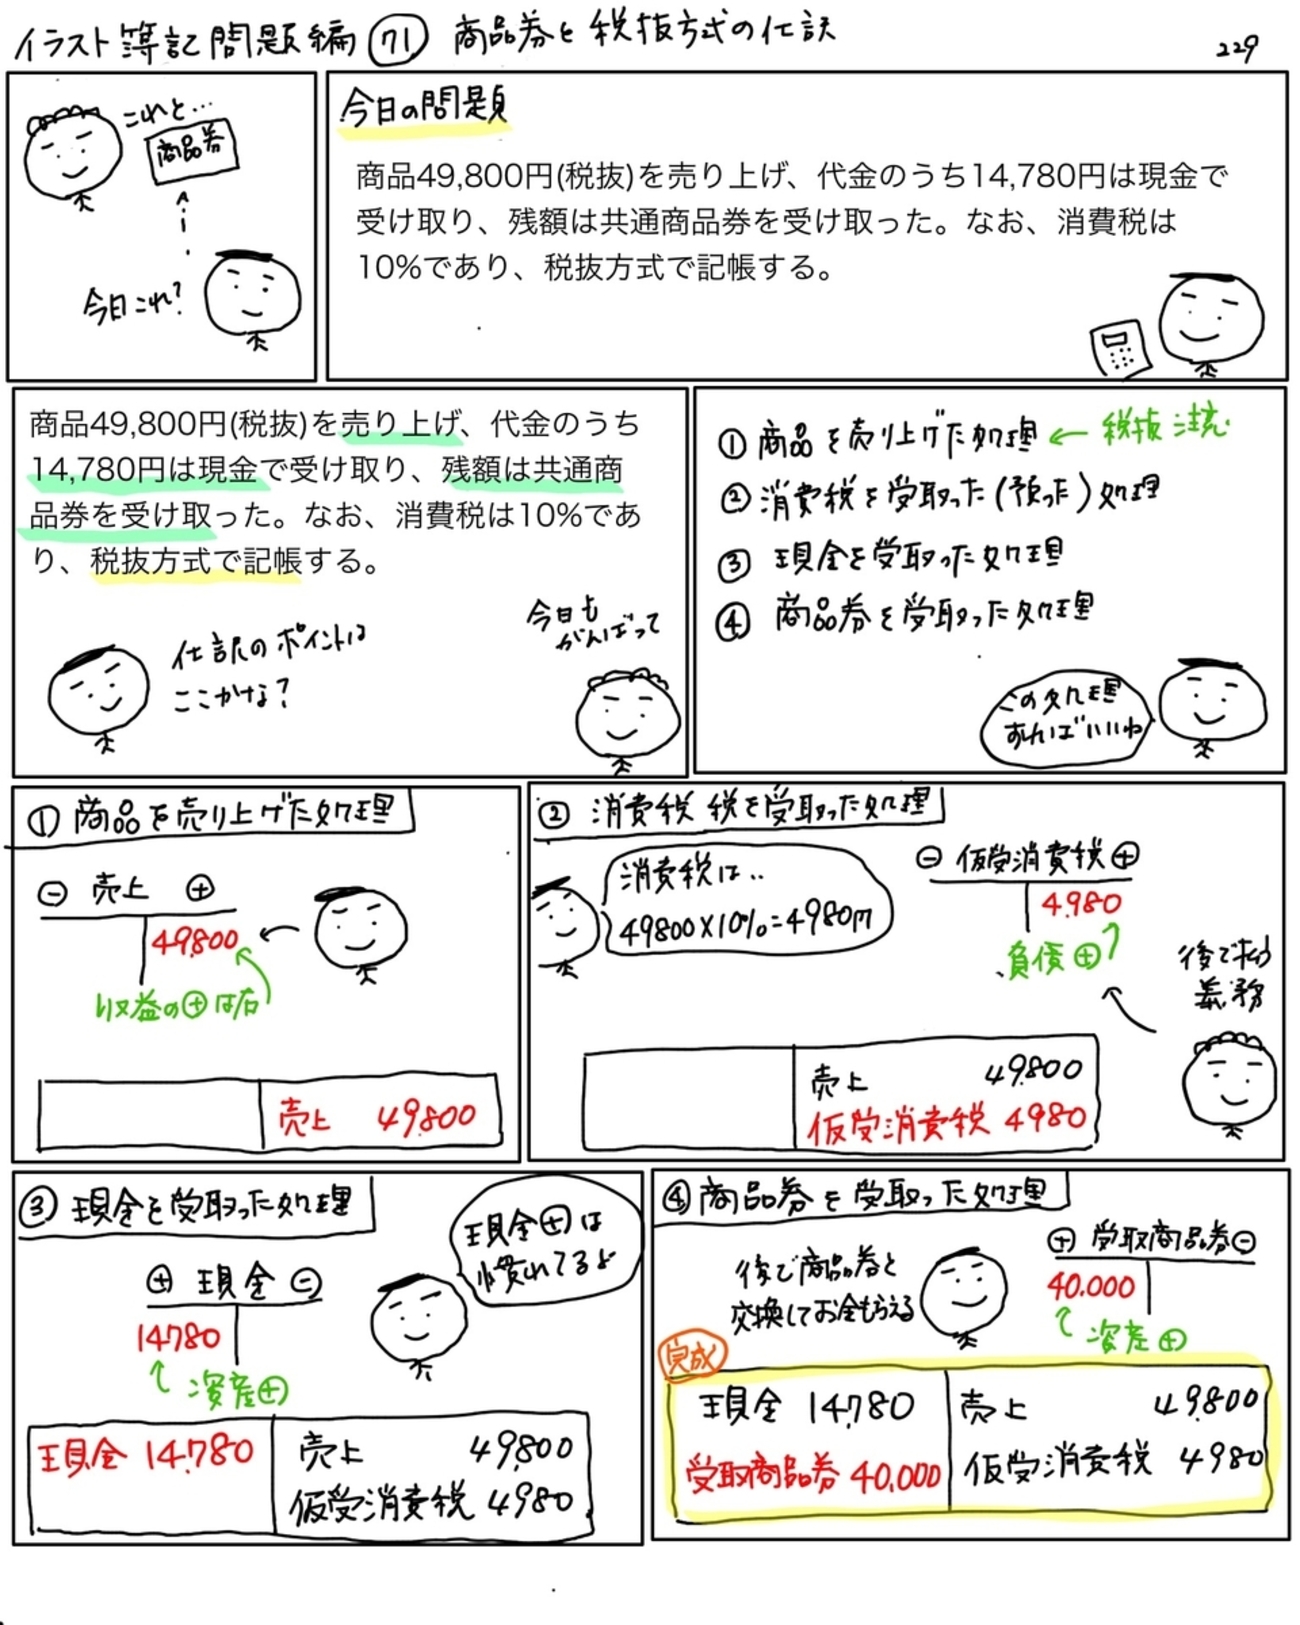 イラスト簿記問題編 71 商品券と税抜方式の仕訳
229
これと…
商品券
今日これ?
今日の問題
商品49,800円(税抜)を売り上げ、代金のうち14,780円は現金で
受け取り、残額は共通商品券を受け取った。なお、消費税は
10%であり、税抜方式で記帳する。
商品49,800円(税抜)を売り上げ、代金のうち
14,780円は現金で受け取り、残額は共通商
品券を受け取った。なお、消費税は10%であ
り、税抜方式で記帳する。
仕訳のポイントは
ここかな?
今日も
がんばって
① 商品を売り上げた処理 ← 税抜注意
② 消費税を受取った(預った)処理
③ 現金を受取った処理
④ 商品券を受取った処理
この処理
すればいいね
① 商品を売り上げた処理
⊖ 売上 ⊕
49,800
収益の⊕は右
売上 49,800
② 消費税 税を受取った処理
消費税は..
49800×10%=4980円
⊖ 仮受消費税 ⊕
4,980
負債⊕
後で払う
義務
売上 49,800
仮受消費税 4980
③ 現金を受取った処理
現金⊕は
慣れてるよ
⊕ 現金 ⊖
14,780
資産⊕
現金 14,780 売上 49,800
仮受消費税 4980
④ 商品券を受取った処理
後で商品券と
交換してお金もらえる
⊕ 受取商品券 ⊖
40,000
資産⊕
完成
現金 14,780 売上 49,800
受取商品券 40,000 仮受消費税 4980